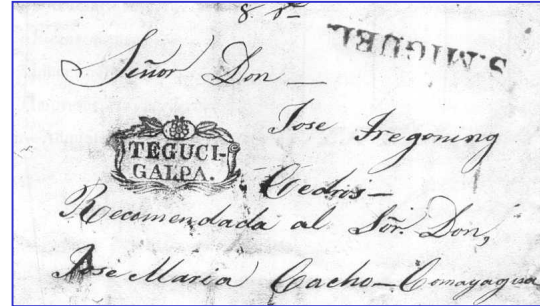 8 rs
S. MIGUEL
Señor Don
Jose Tregoning
TEGUCI-
GALPA.
Cedros
Recomendada al Sõr. Don,
Jose Maria Cacho - Comayagua